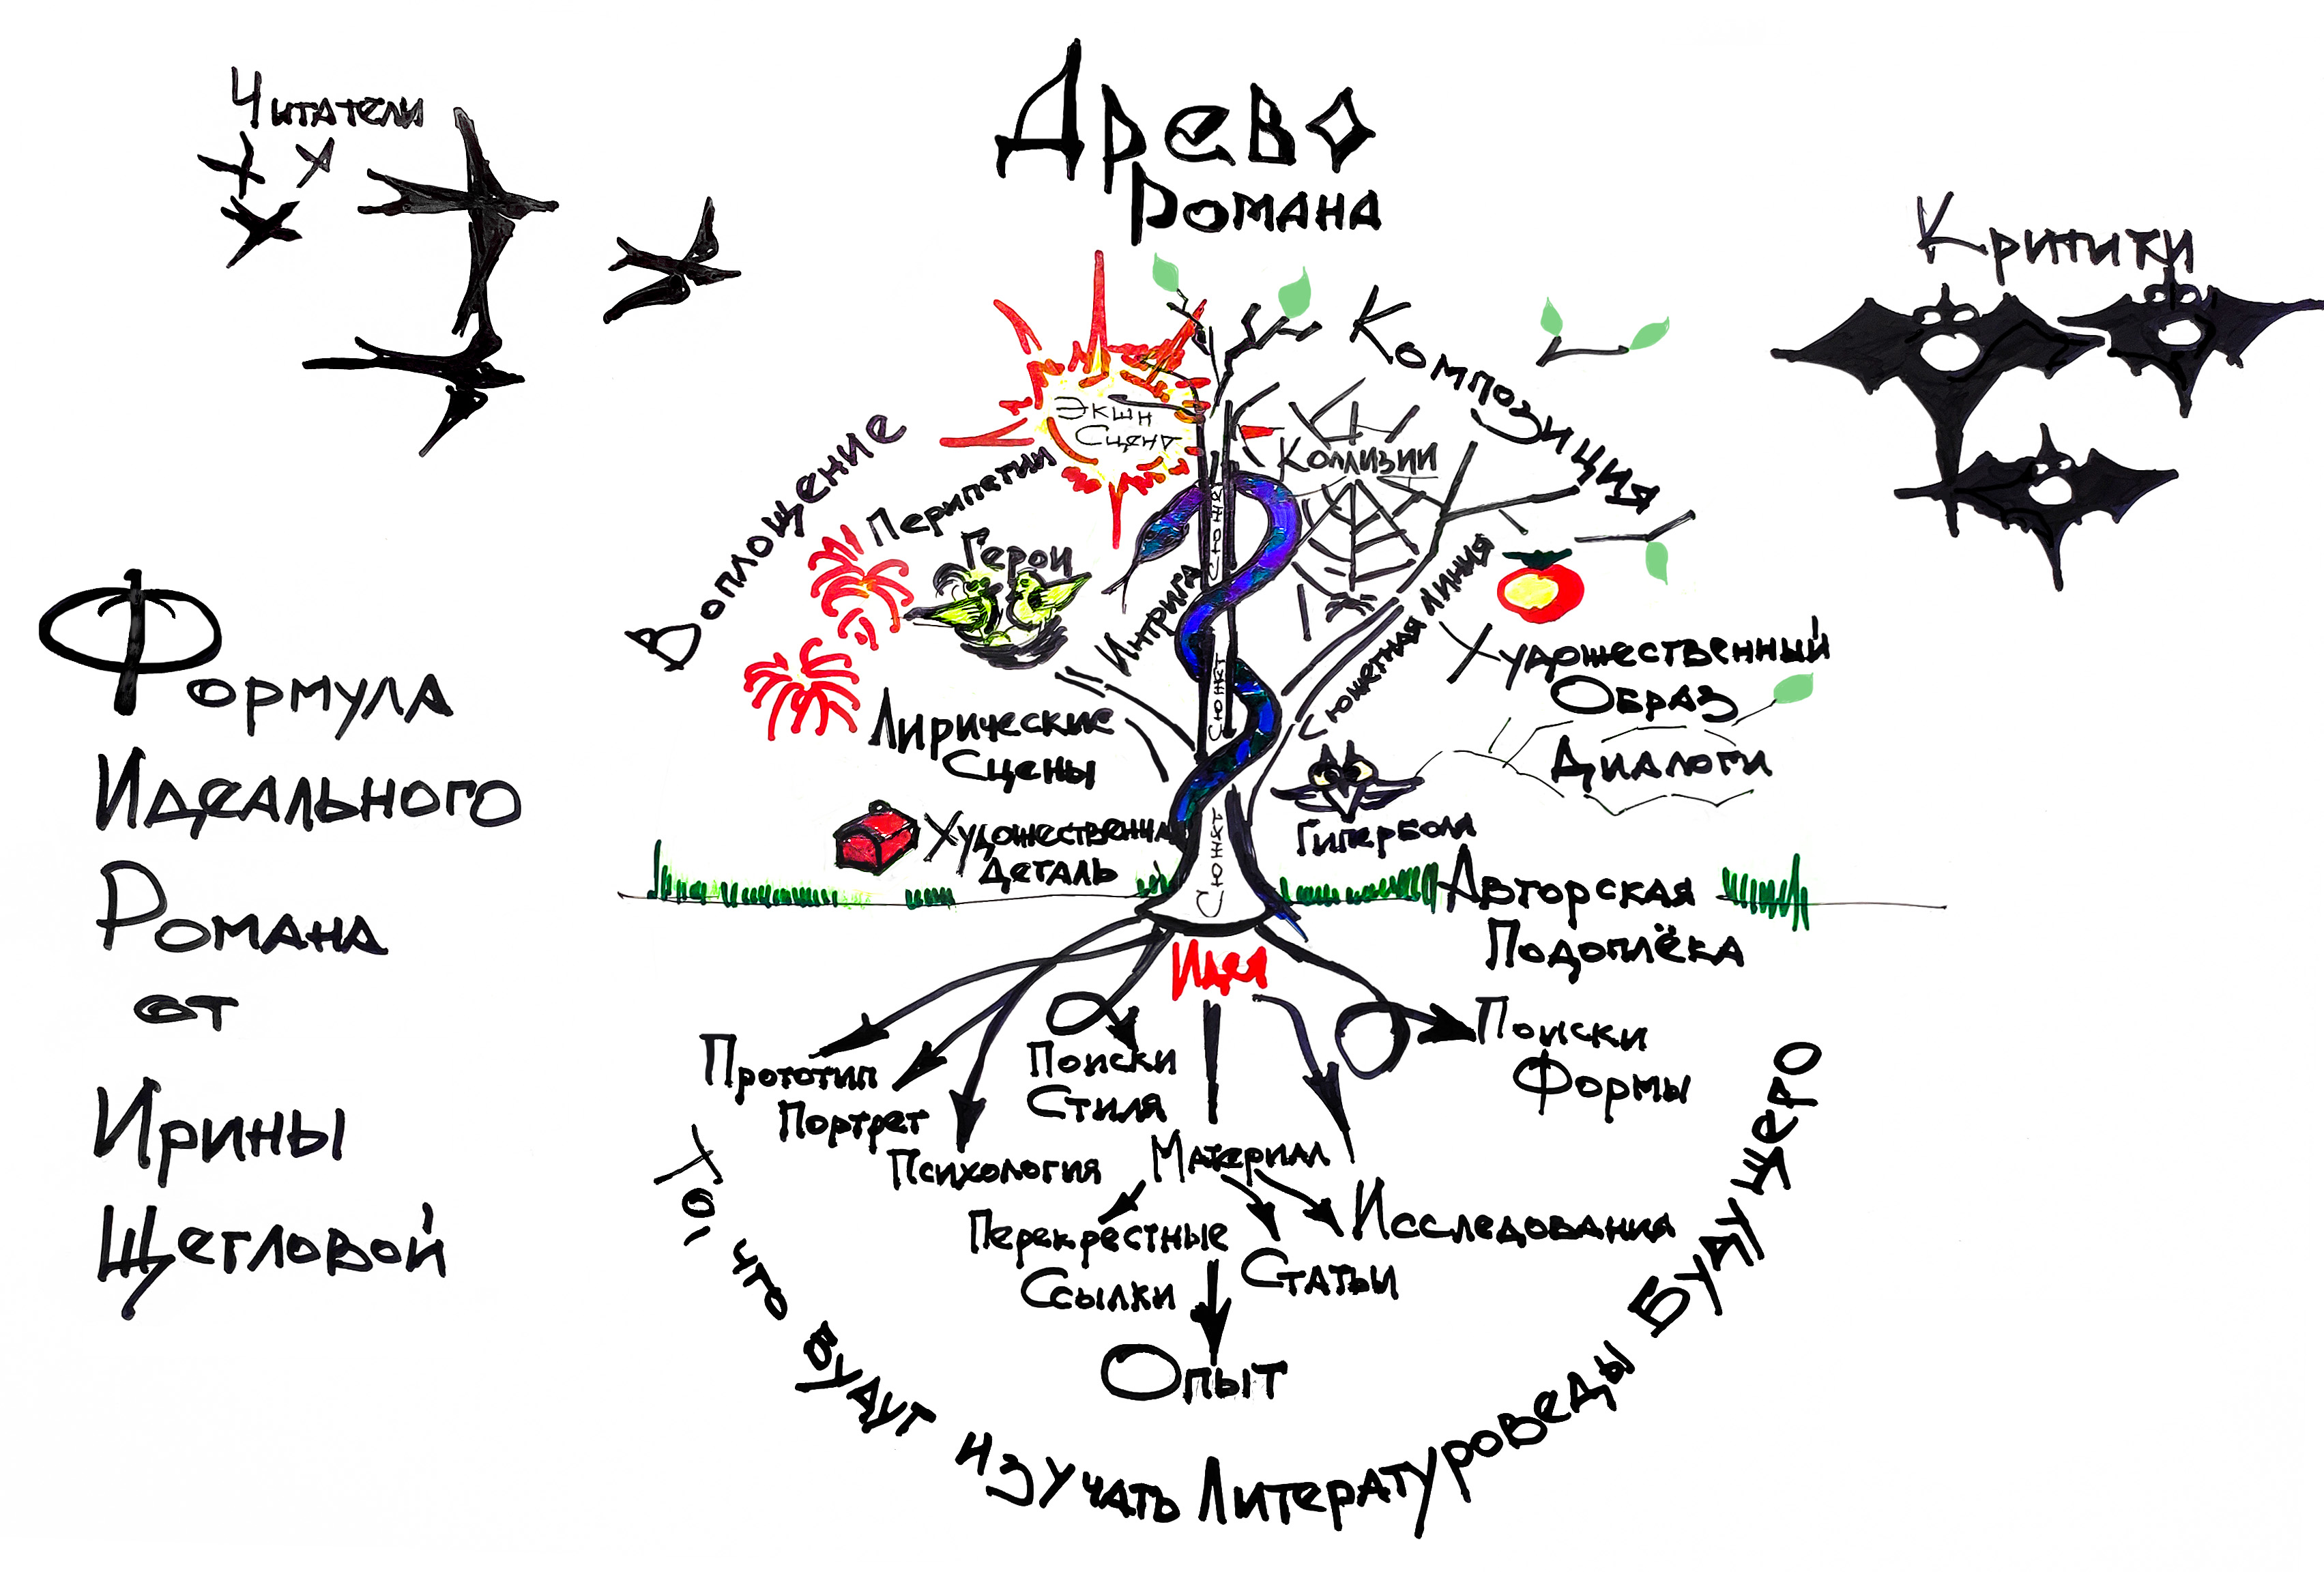 Читатели
Древо
Романа
Критики
Формула
Идеального
Романа
от
Ирины
Щегловой
Воплощение
Композиция
Экшн
Сцена
Перипетии
Коллизии
Герои
Интрига
Сюжет
Сюжет
Сюжет
Сюжетная линия
Художественный
Образ
Лирические
Сцены
Диалоги
Гипербола
Художественная
Деталь
Авторская
Подоплёка
Идея
Прототип
Портрет
Психология
Поиски
Стиля
Поиски
Формы
Материал
Перекрестные
Ссылки
Статьи
Исследования
Опыт
То, что будут изучать Литературоведы Будущего